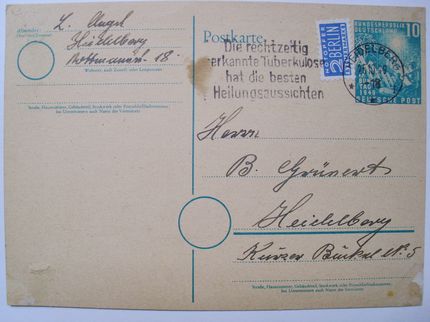 (Absender)
L. Angel
Heidelberg
Rottmannstr. 18
Wohnort, auch Zustell- oder Leitpostamt
Straße, Hausnummer, Gebäudeteil, Stockwerk oder Postschließfachnummer,
bei Untermietern auch Name des Vermieters
Postkarte
Die rechtzeitig
erkannte Tuberkulose
hat die besten
Heilungsaussichten
NOTOPFER
2 BERLIN
STEUERMARKE
HEIDELBERG
BUNDESREPUBLIK
DEUTSCHLAND
10
1949
DEUTSCHE POST
Herrn
B. Grünert
Heidelberg
Kurzer Buckel No. 5
Straße, Hausnummer, Gebäudeteil, Stockwerk oder Postschließfachnummer,
bei Untermietern auch Name des Vermieters